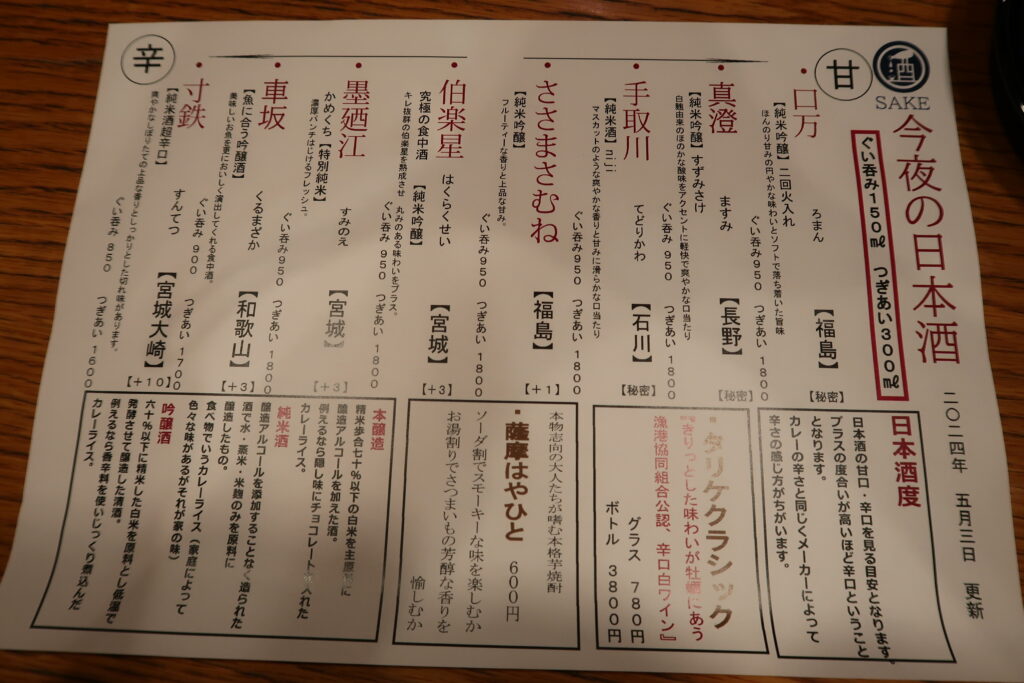 酒
SAKE
今夜の日本酒
ぐい呑み150㎖ つぎあい300㎖
二〇二四年 五月三日 更新
甘
・口万 ろまん 【福島】
【純米吟醸】二回火入れ
ほんのり甘みの円やかな味わいとソフトで落ち着いた旨味
ぐい呑み950 つぎあい1800
【秘密】
・真澄 ますみ 【長野】
【純米吟醸】すずみさけ
白麹由来のほのかな酸味をアクセントに軽快で爽やかな口当たり
ぐい呑み 950 つぎあい 1800
【秘密】
・手取川 てどりかわ 【石川】
【純米酒】
マスカットのような爽やかな香りと甘みに滑らかな口当たり
ぐい呑み 950 つぎあい 1800
【秘密】
・ささまさむね 【福島】
【純米吟醸】
フルーティーな香りと上品な甘み。
ぐい呑み950 つぎあい 1800
【+1】
・伯楽星 はくらくせい 【宮城】
究極の食中酒 【純米吟醸】
キレ抜群の伯楽星を熟成させ 丸みのある味わいをプラス。
ぐい呑み 950 つぎあい 1800
【+3】
・墨廼江 すみのえ 【宮城】
かめくち【特別純米】
濃厚パンチはじけるフレッシュ。
ぐい呑み950 つぎあい 1800
【+3】
・車坂 くるまざか 【和歌山】
【魚に合う吟醸酒】
美味しいお魚を更においしく演出してくれる食中酒。
ぐい呑み 900 つぎあい 1700
【+3】
・寸鉄 すんてつ 【宮城大崎】
【純米酒超辛口】
爽やかなしぼりたての上品な香りとしっかりとした切れ味があります。
ぐい呑み 850 つぎあい 1600
【+10】
辛
日本酒度
日本酒の甘口・辛口を見る目安となります。
プラスの度合いが高いほど辛口ということ
となります。
カレーの辛さと同じくメーカーによって
辛さの感じ方がちがいます。
・タリケクラシック
『きりっとした味わいが牡蠣にあう
漁港協同組合公認、辛口白ワイン』
グラス 780円
ボトル 3800円
本物志向の大人たちが嗜む本格芋焼酎
・薩摩はやひと 600円
ソーダ割でスモーキーな味を楽しむか
お湯割りでさつまいもの芳醇な香りを
愉しむか
本醸造
精米歩合七十%以下の白米を主原料に
醸造アルコールを加えた酒。
例えるなら隠し味にチョコレートを入れた
カレーライス。
純米酒
醸造アルコールを添加することなく造られた
酒で水・蒸米・米麹のみを原料に
醸造したもの。
食べ物でいうカレーライス（家庭によって
色々な味があるがそれが家の味）
吟醸酒
六十%以下に精米した白米を原料とし低温で
発酵させて醸造した清酒。
例えるなら香辛料を使いじっくり煮込んだ
カレーライス。